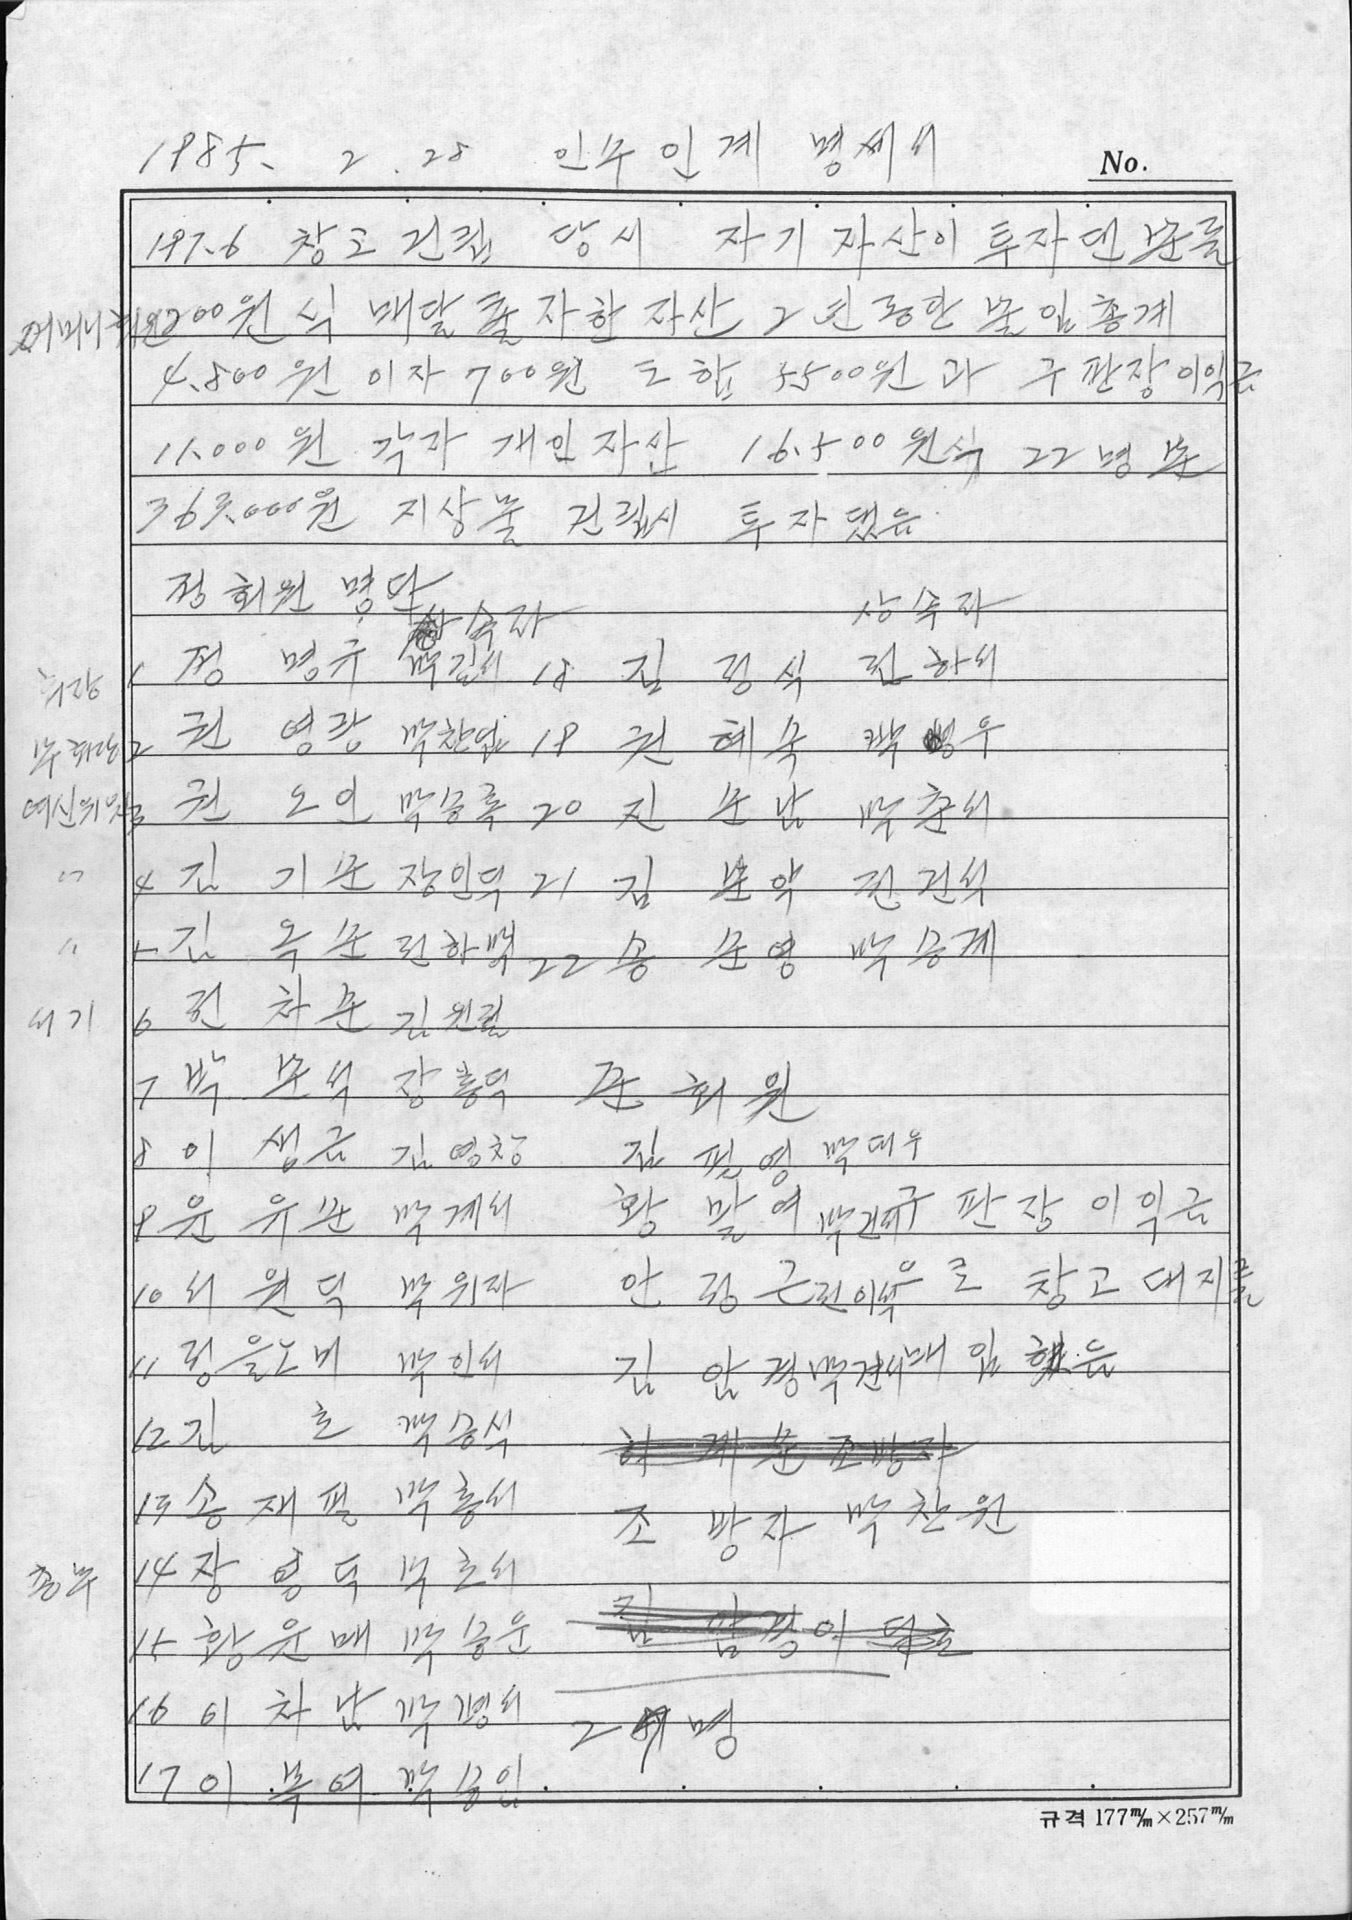 1985. 2. 28 인수인계 명세서
No.
197.6 창고건립 당시 자기자산이 투자된분들
어머니회원 200원식 매달 출자한자산 2년동안 불입총계
4,800원 이자 700원 도합 5500원과 구판장이익금
11,000원 각자 개인자산 16,500원식 22명분
363,000원 지상물 건립시 투자됐음
정회원 명단
상속자 상속자
회장 1 정명규 박길서 18 김정식 전하서
부회장 2 권영랑 박찬업 19 권혜숙 박병우
여신위원 3 권오인 박승록 20 진분난 박춘서
〃 4 김기분 장인덕 21 김분악 전건석
〃 5 김옥분 전하백 22 송분영 박승계
서기 6 전차분 김원길
7 박분석 장홍덕 준회원
8 이생금 김영창 김필영 박대우
9 윤유분 박계서 황말여 박건태 구판장이익금
10 서원덕 박위자 안랑근 전이석 으로 창고대지를
11 정을노미 박인서 김암경 박건서 매입했음
12 김호 박승식
13 송재필 박홍서 조방자 박찬원
총무 14 장영덕 박호서
15 황윤매 박승운
16 이차난 박평서 명
17 이복여 박승일
규격 177㎜×257㎜